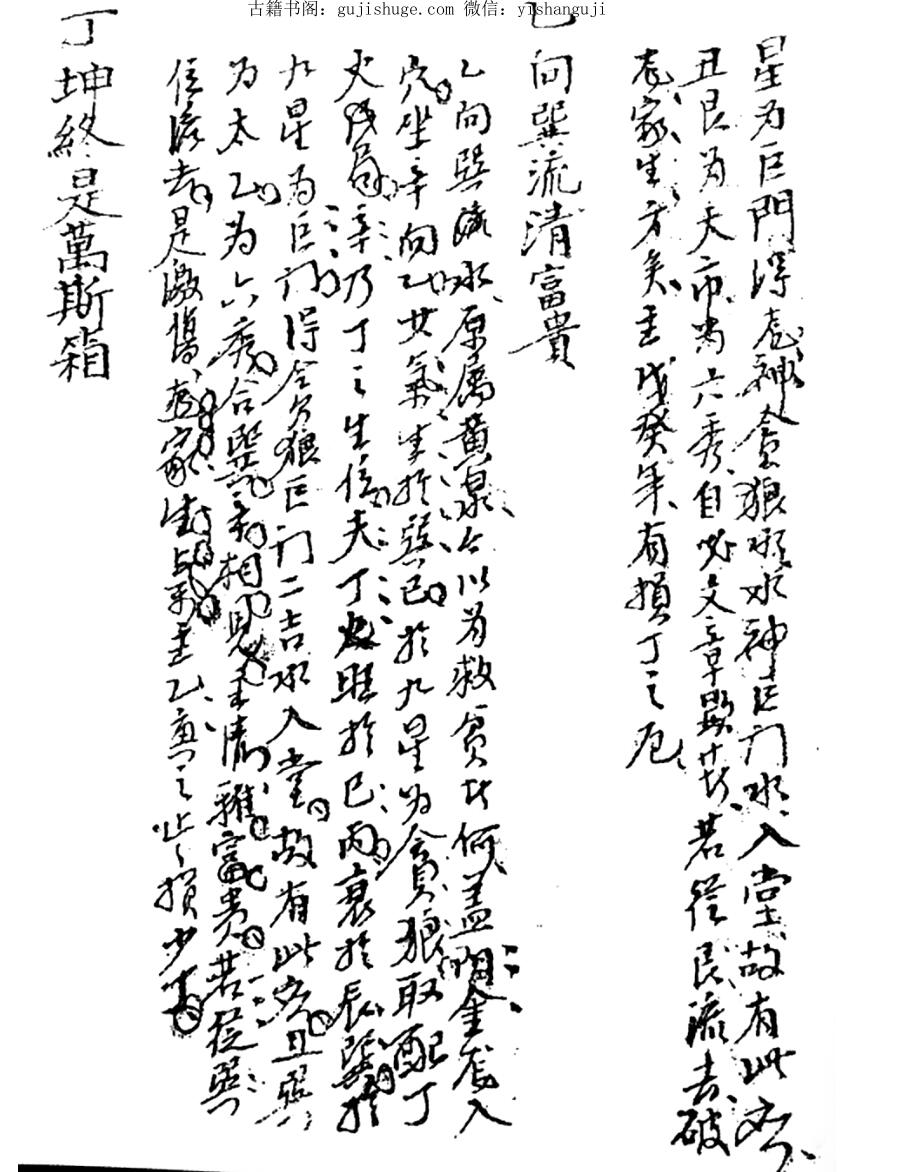 古籍书阁：gujishuge.com 微信：yishanguji
星为巨門浔龙神貪狼水神巨门水入堂故有此
丑艮为天市为六秀自必文章显若從艮流去破
龙家生方矣主戊癸年有損丁之厄
乙向巽流清富貴
乙向巽流水原属黄泉今以为救貧者何盖金为入
穴坐辛向乙其氣生於巽巳於九星为貪狼取配丁
火局辛乃丁之生位夫丁火旺於巳丙衰於辰巽於
九星为巨门得合貪狼巨门二吉水入堂故有此且巽
为太乙为六秀合巽辛相見主清雅富贵若從巽
位流去是激龙家生主乙庚之損少丁
丁坤終是萬斯箱